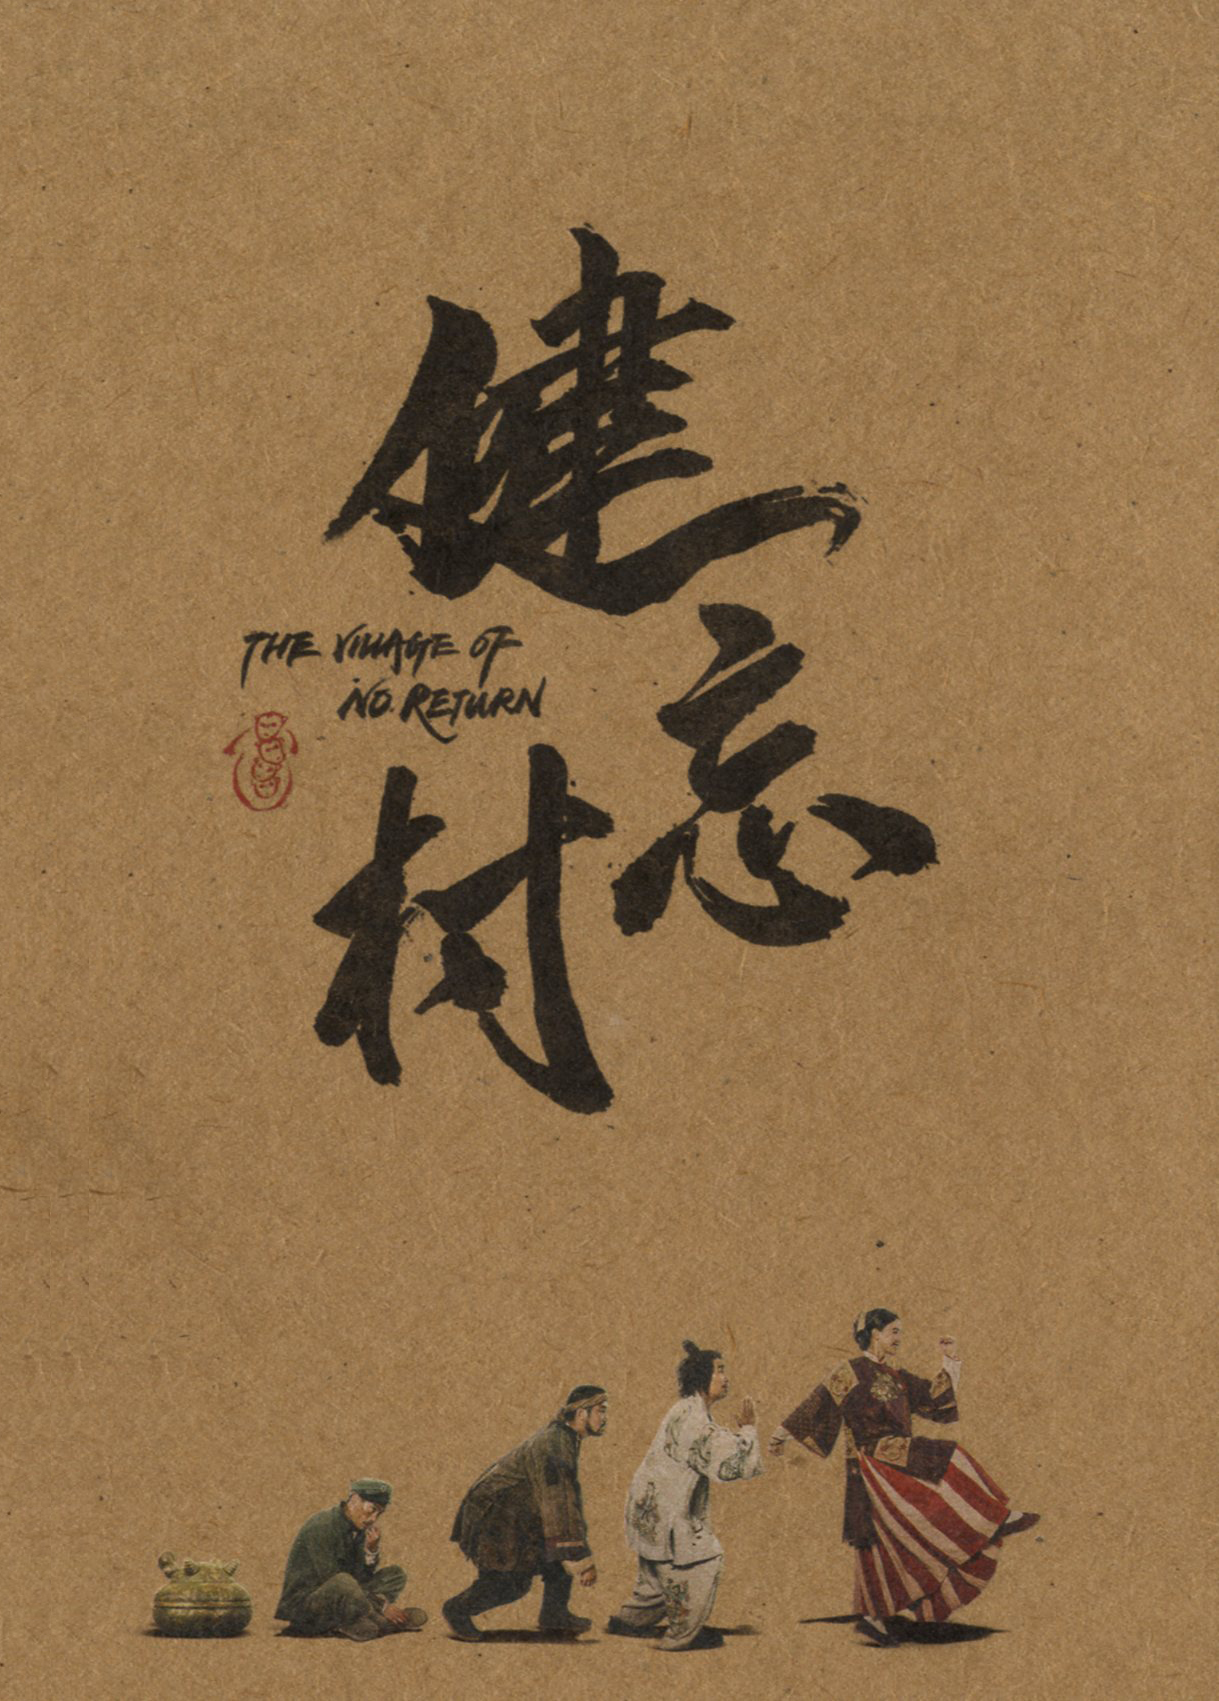 健忘村
THE VILLAGE OF
NO RETURN